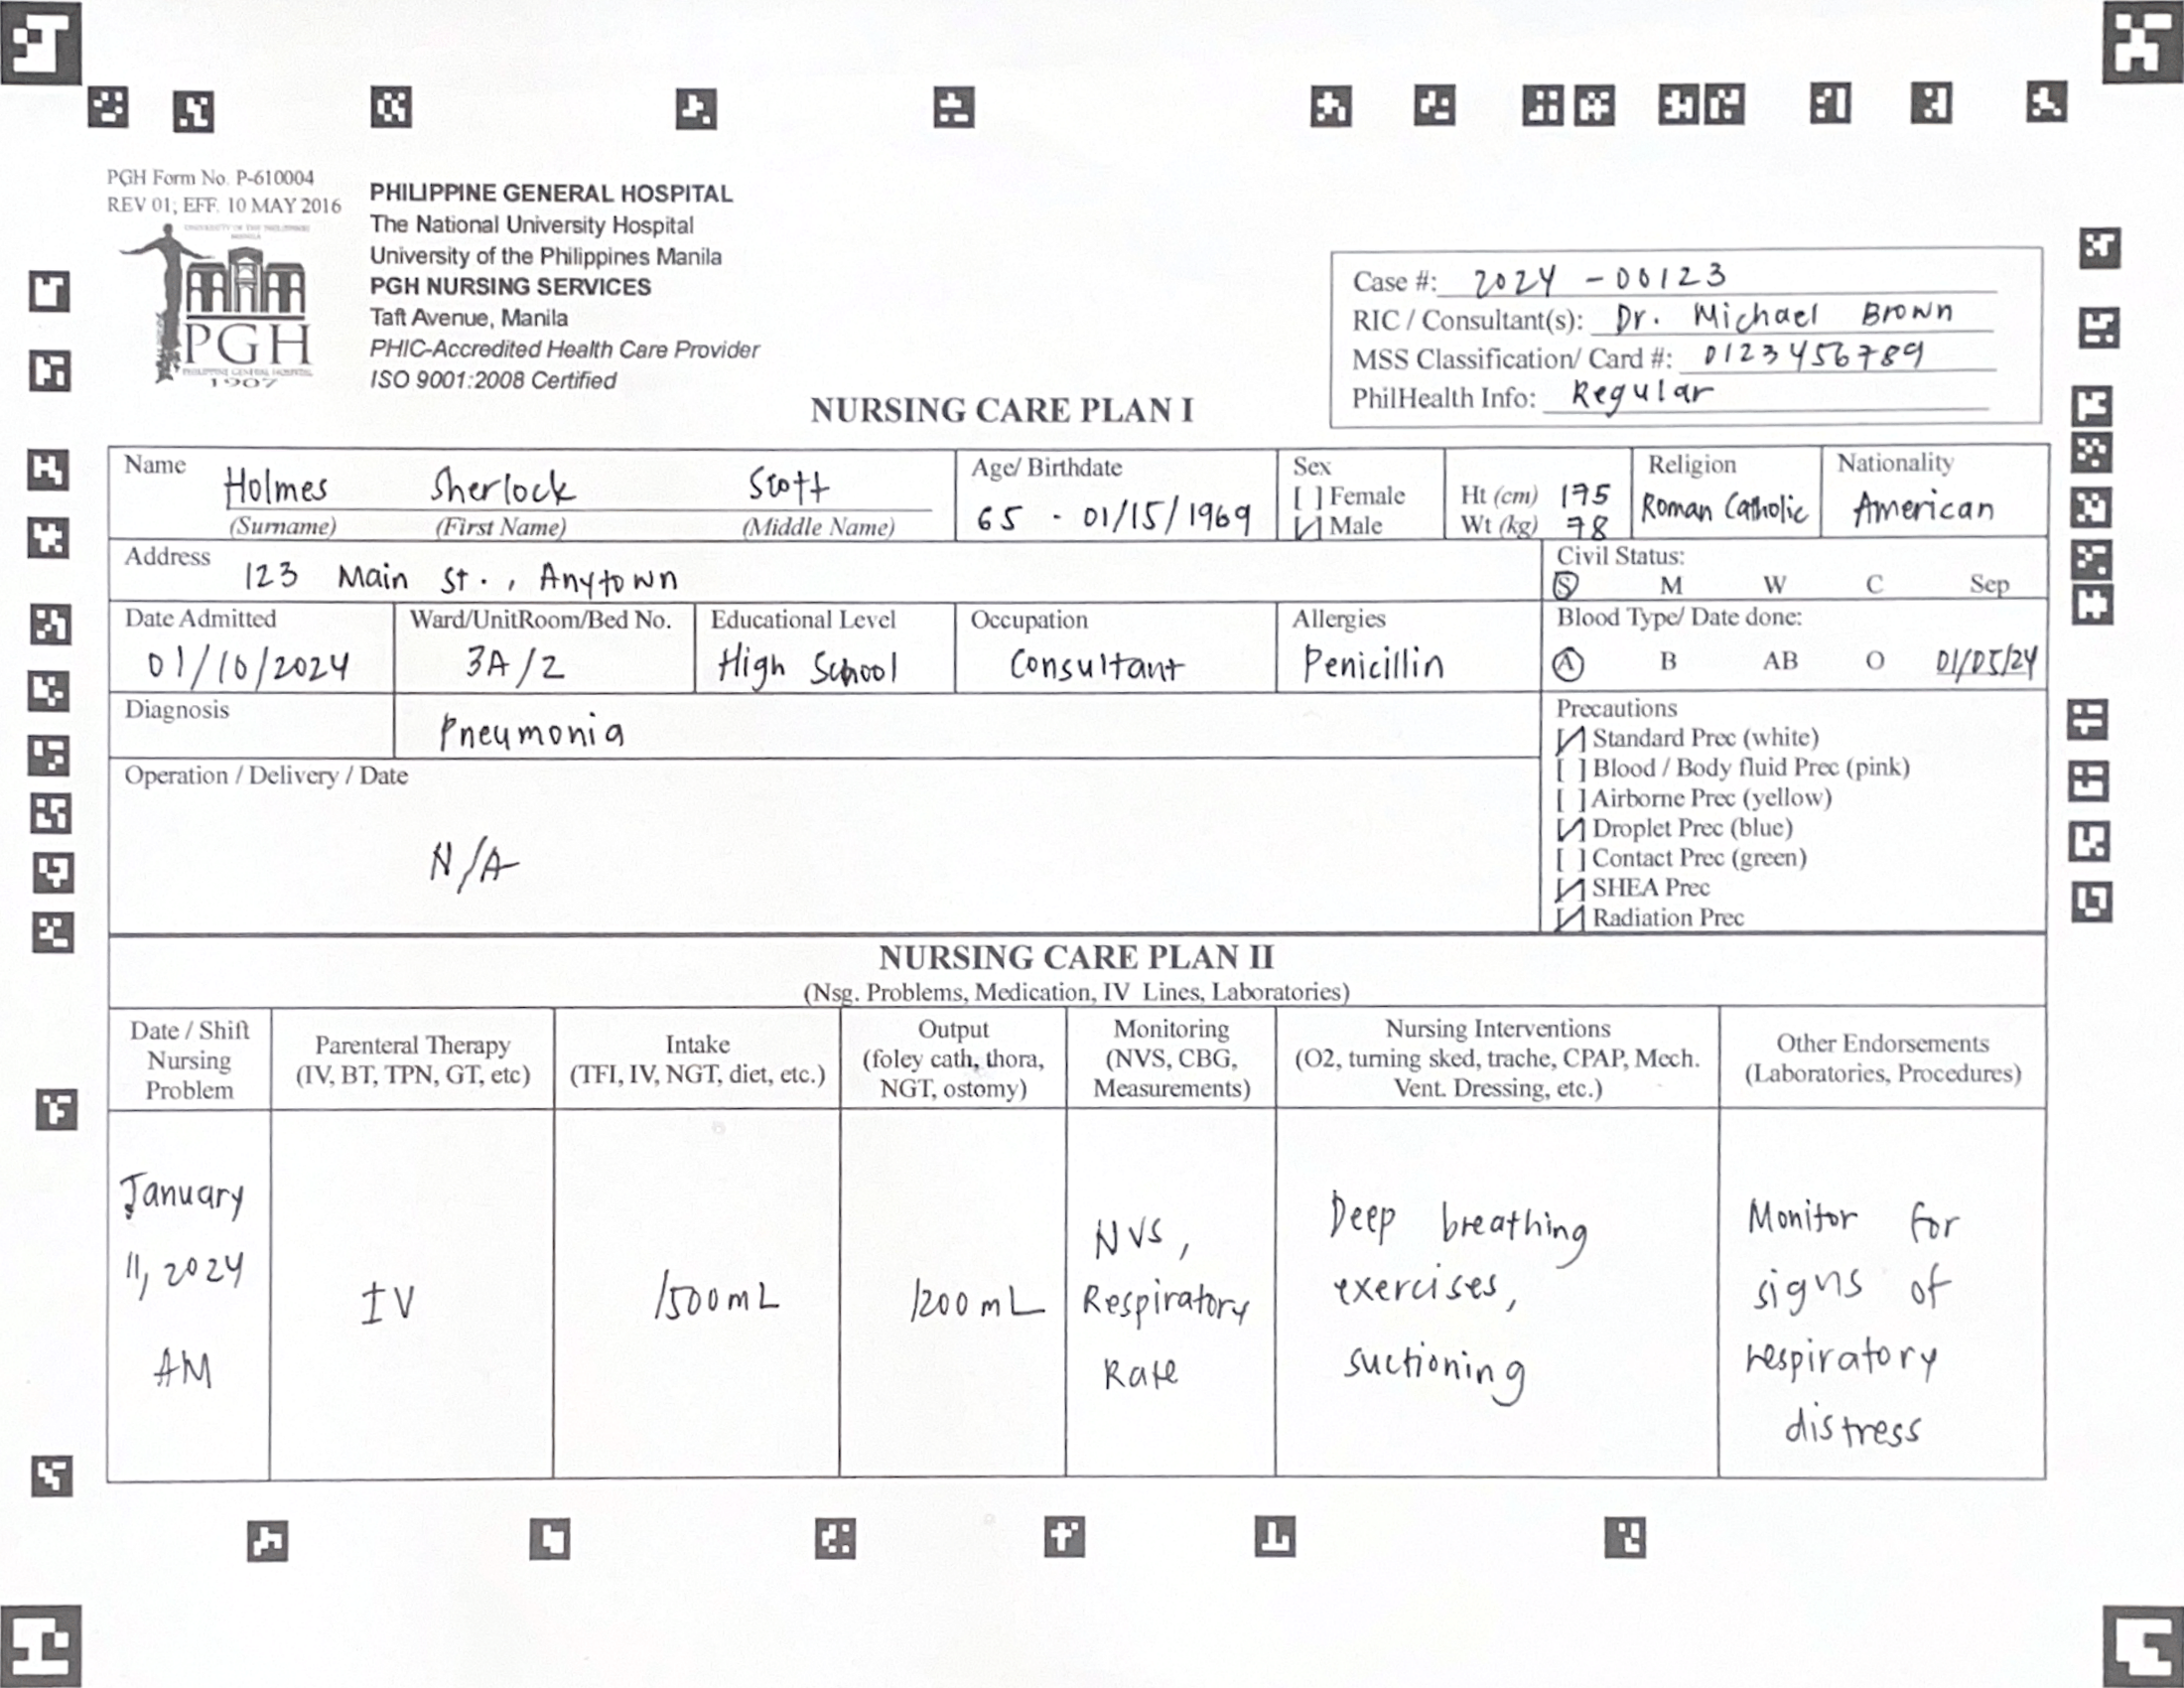 PGH Form No. P-610004
REV 01; EFF. 10 MAY 2016
UNIVERSITY OF THE PHILIPPINES
MANILA
PGH
PHILIPPINE GENERAL HOSPITAL
1907
PHILIPPINE GENERAL HOSPITAL
The National University Hospital
University of the Philippines Manila
PGH NURSING SERVICES
Taft Avenue, Manila
PHIC-Accredited Health Care Provider
ISO 9001:2008 Certified
Case #: 2024 - 00123
RIC / Consultant(s): Dr. Michael Brown
MSS Classification/ Card #: 0123456789
PhilHealth Info: Regular
NURSING CARE PLAN I
Name
Holmes Sherlock Scott
(Surname) (First Name) (Middle Name)
Age/ Birthdate
65 - 01/15/1969
Sex
[ ] Female
[/] Male
Ht (cm) 175
Wt (kg) 78
Religion
Roman Catholic
Nationality
American
Address
123 Main St., Anytown
Civil Status:
S M W C Sep
Date Admitted
01/10/2024
Ward/UnitRoom/Bed No.
3A/2
Educational Level
High School
Occupation
Consultant
Allergies
Penicillin
Blood Type/ Date done:
A B AB O 01/05/24
Diagnosis
Pneumonia
Operation / Delivery / Date
N/A
Precautions
[/] Standard Prec (white)
[ ] Blood / Body fluid Prec (pink)
[ ] Airborne Prec (yellow)
[/] Droplet Prec (blue)
[ ] Contact Prec (green)
[/] SHEA Prec
[/] Radiation Prec
NURSING CARE PLAN II
(Nsg. Problems, Medication, IV Lines, Laboratories)
Date / Shift
Nursing
Problem
Parenteral Therapy
(IV, BT, TPN, GT, etc)
Intake
(TFI, IV, NGT, diet, etc.)
Output
(foley cath, thora,
NGT, ostomy)
Monitoring
(NVS, CBG,
Measurements)
Nursing Interventions
(O2, turning sked, trache, CPAP, Mech.
Vent. Dressing, etc.)
Other Endorsements
(Laboratories, Procedures)
January
11, 2024
AM
IV
1500mL
1200mL
NVS,
Respiratory
Rate
Deep breathing
exercises,
suctioning
Monitor for
signs of
respiratory
distress